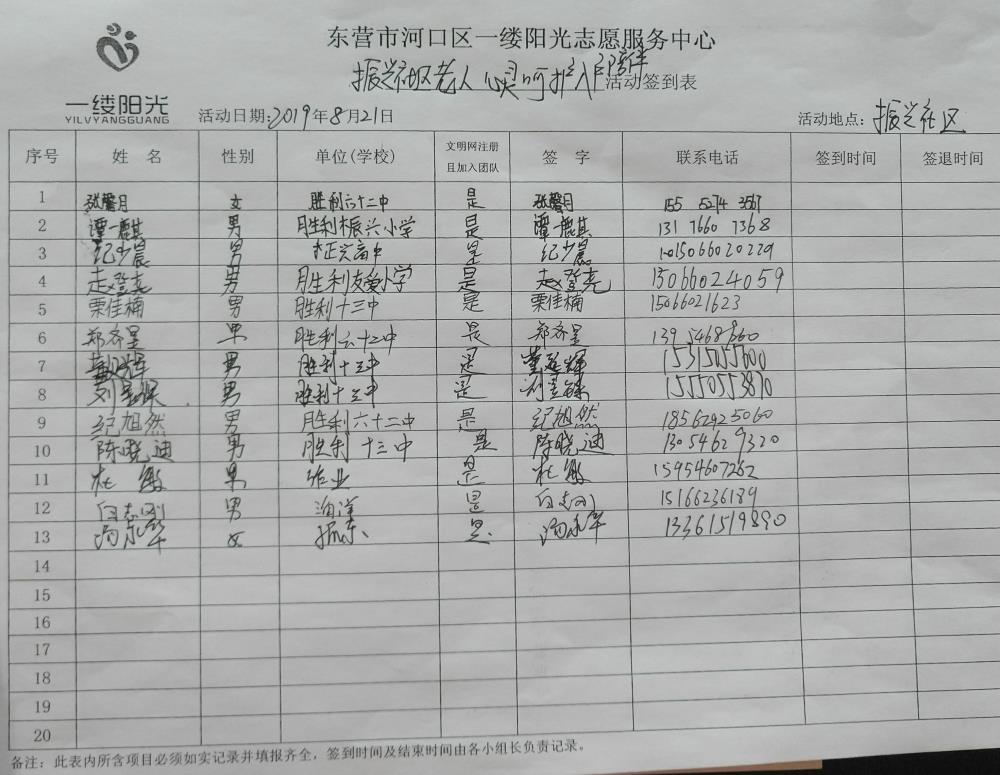 东营市河口区一缕阳光志愿服务中心
振兴社区老人心灵呵护入户陪伴活动签到表
一缕阳光
YILVYANGGUANG
活动日期:2019年8月21日
活动地点:振兴社区
序号 姓 名 性别 单位(学校) 文明网注册且加入团队 签 字 联系电话 签到时间 签退时间
1 张馨月 女 胜利六十二中 是 张馨月 155 5274 3567
2 谭一麒 男 胜利振兴小学 是 谭一麒 131 7660 7368
3 纪少晨 男 振兴高中 是 纪少晨 15066020229
4 赵登亮 男 胜利友爱小学 是 赵登亮 15066024059
5 栗佳楠 男 胜利十三中 是 栗佳楠 1506621623
6 郑齐星 男 胜利六十二中 是 郑齐星
7 男 胜利十三中 是
8 男 胜利十三中 是 15550553870
9 纪旭然 男 胜利六十二中 是 纪旭然 18562925060
10 陈晓迪 男 胜利十三中 是 陈晓迪 13054629320
11 杜 敏 男 作业 是 杜 敏 15954607252
12 白志刚 男 海洋 是 白志刚 15166236189
13 冯永华 女 振东 是 冯永华 13361519890
14
15
16
17
18
19
20
备注：此表内所含项目必须如实记录并填报齐全，签到时间及结束时间由各小组长负责记录。